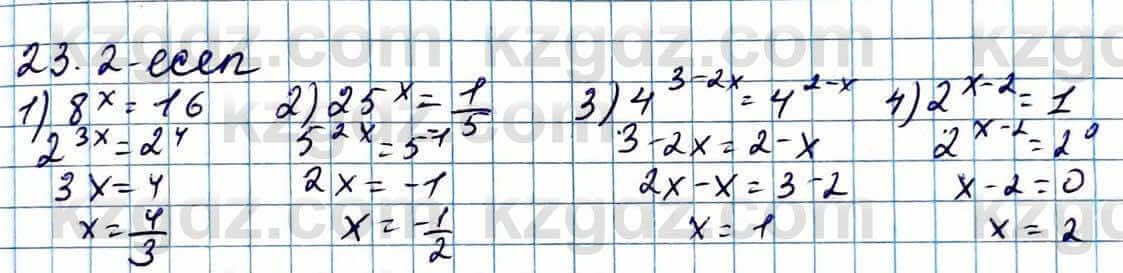 23.2-есеп
1) 8^x = 16
2^{3x} = 2^4
3x = 4
x = 4/3
2) 25^x = 1/5
5^{2x} = 5^{-1}
2x = -1
x = -1/2
3) 4^{3-2x} = 4^{2-x}
3-2x = 2-x
2x-x = 3-2
x = 1
4) 2^{x-2} = 1
2^{x-2} = 2^0
x-2 = 0
x = 2
kzgdz.com kzgdz.com kzgdz
kzgdz.com kzgdz.com
kzgdz.com kzgdz.com kzgdz